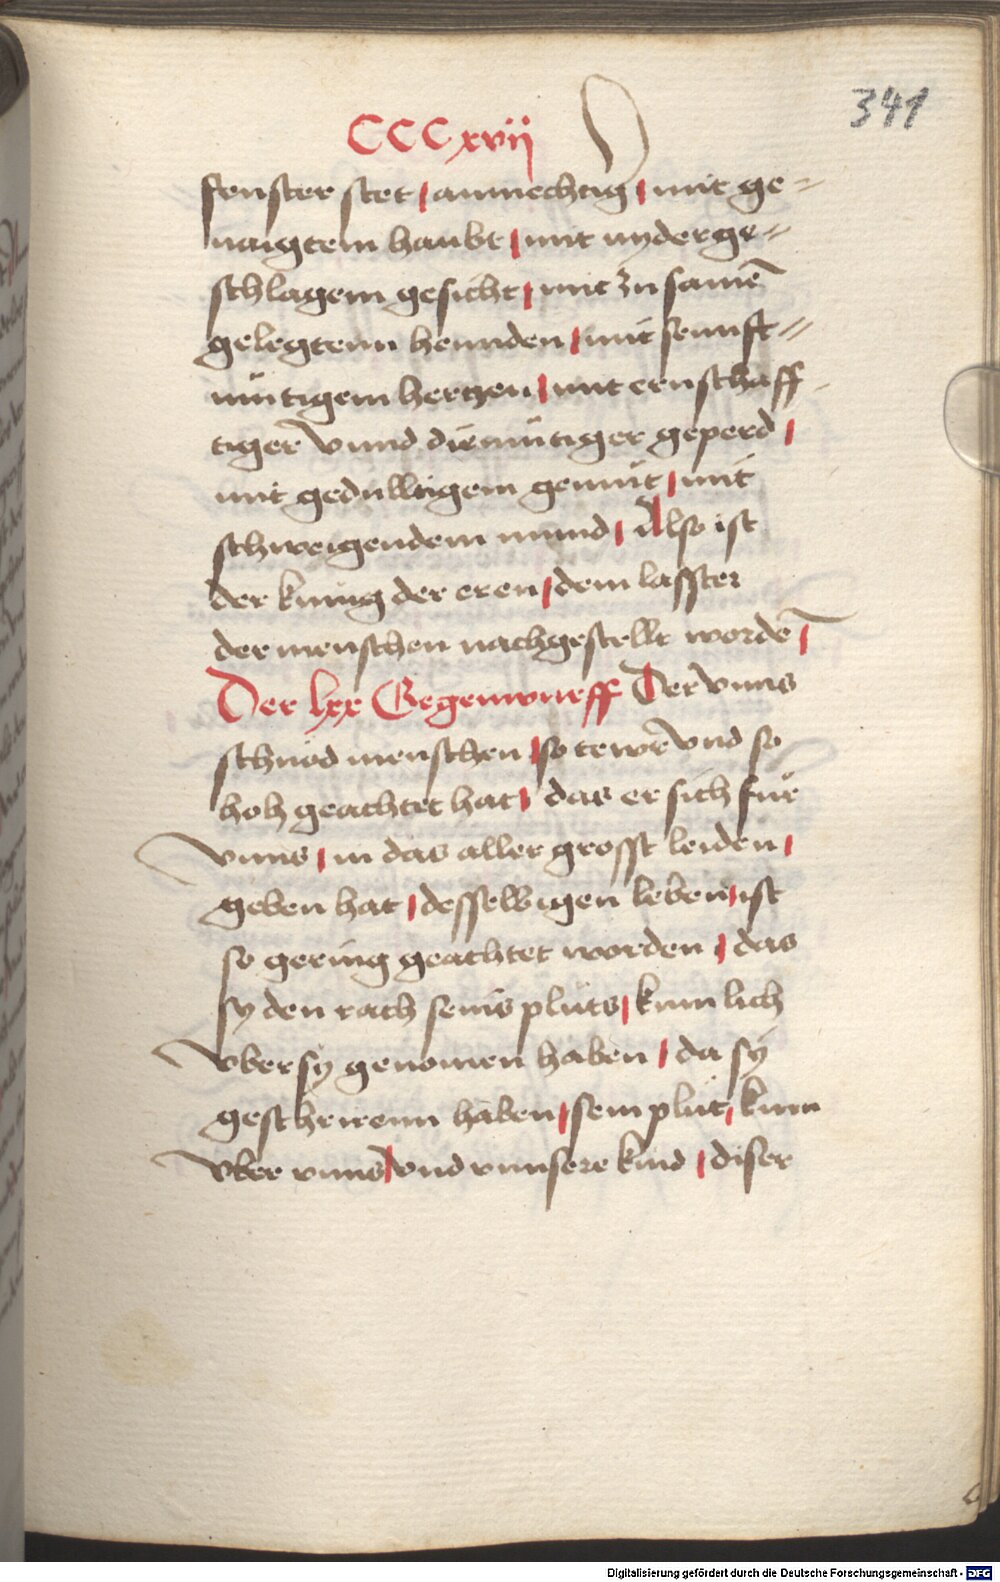 341
CCCxvij
fenster stet | anmechtig | mit ge-
naigtem haubt | mit nyderge-
schlagem gesicht | mit zu samē
gelegtenn hennden | mit sennft-
mütigem hertzen | mit ernschaff
tiger vnnd diemütiger geperd |
mit gedulltigem gemüt | mit
schweigendem mund | Also ist
der kunig der eren | dem lasster
der menschen nachgestellt wordē |
Der lxx Gegenwurff Der vnns
schnöd menschen | so tewr vnd so
hoh geachtet hat | das er sich für
vnns | in das aller grosst leiden |
geben hat | desselbigen leben | ist
so gering geachtet worden | das
sy den rach seins pluts | kumlich
vber sy genomen haben | da sy
geschrirenn haben | sein plüt | kum
vber vnns | vnd vnnsere kind | diser
Digitalisierung gefördert durch die Deutsche Forschungsgemeinschaft - DFG